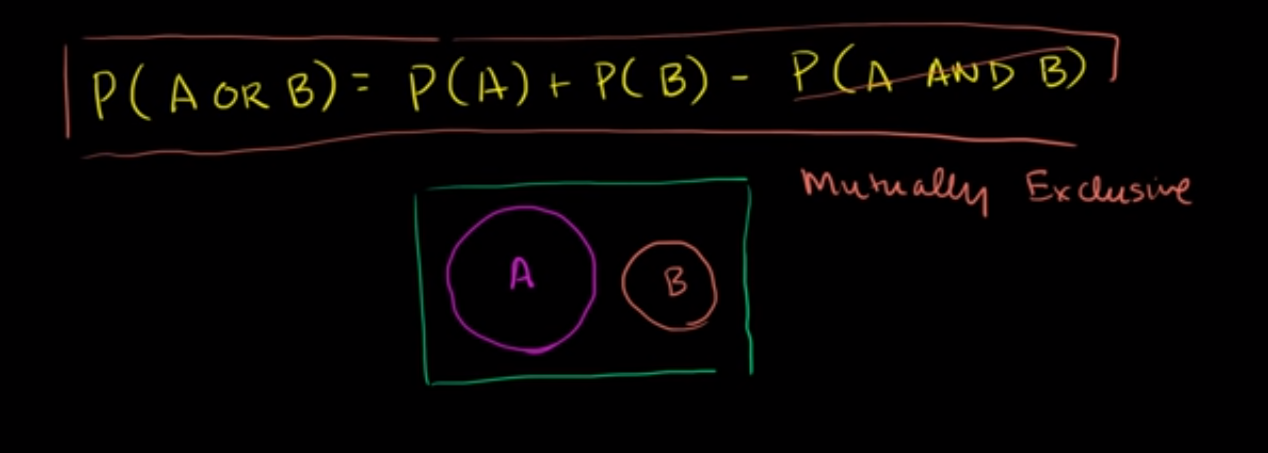 P(A OR B) = P(A) + P(B) - P(A AND B)
Mutually Exclusive
A
B